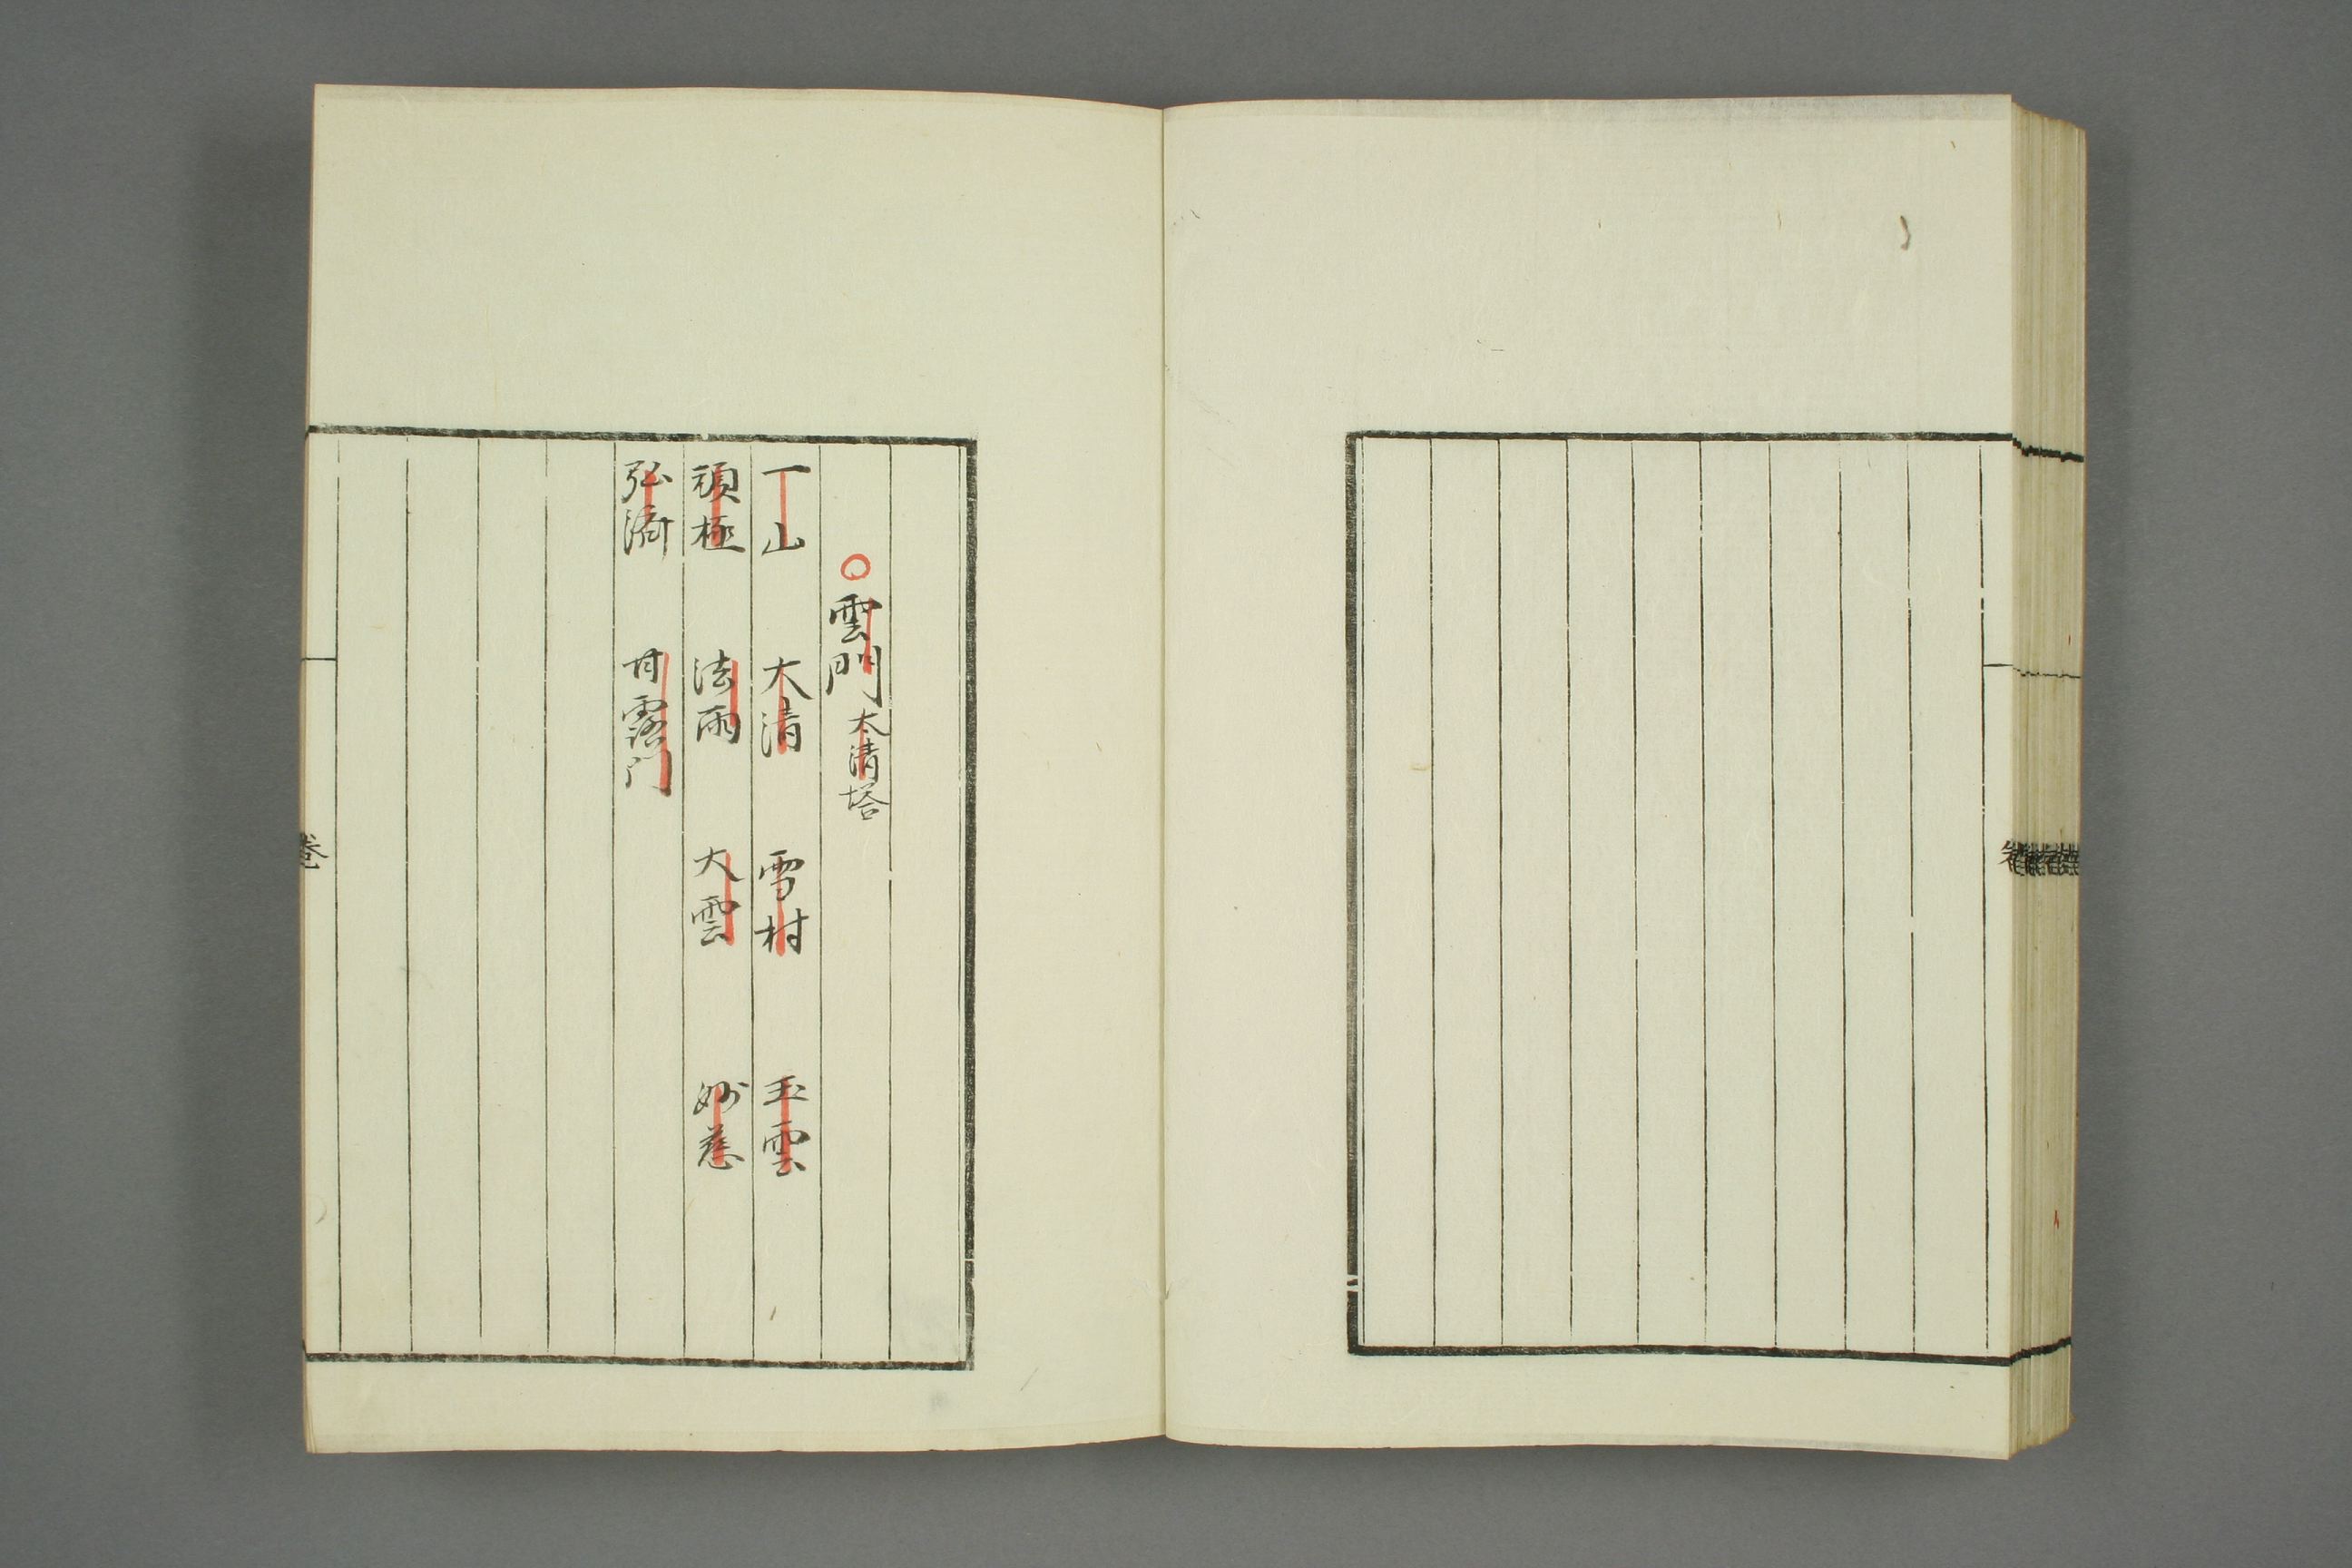 ○雲門 太清塔
一山 大清 雪村 玉雲
頑極 法雨 大雲 妙慈
弘濟 甘露門
卷